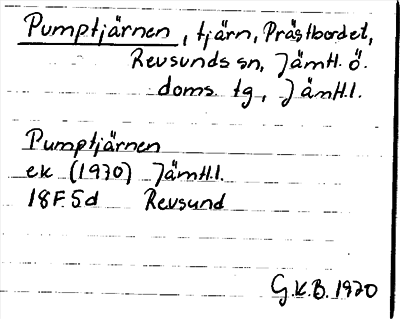 Pumptjärnen, tjärn, Prästbordet,
Revsunds sn, Jämtl. ö.
doms. tg, Jämtl.l.
Pumptjärnen
ek (1970) Jämtl.l.
18F5d Revsund
G.K.B. 1970